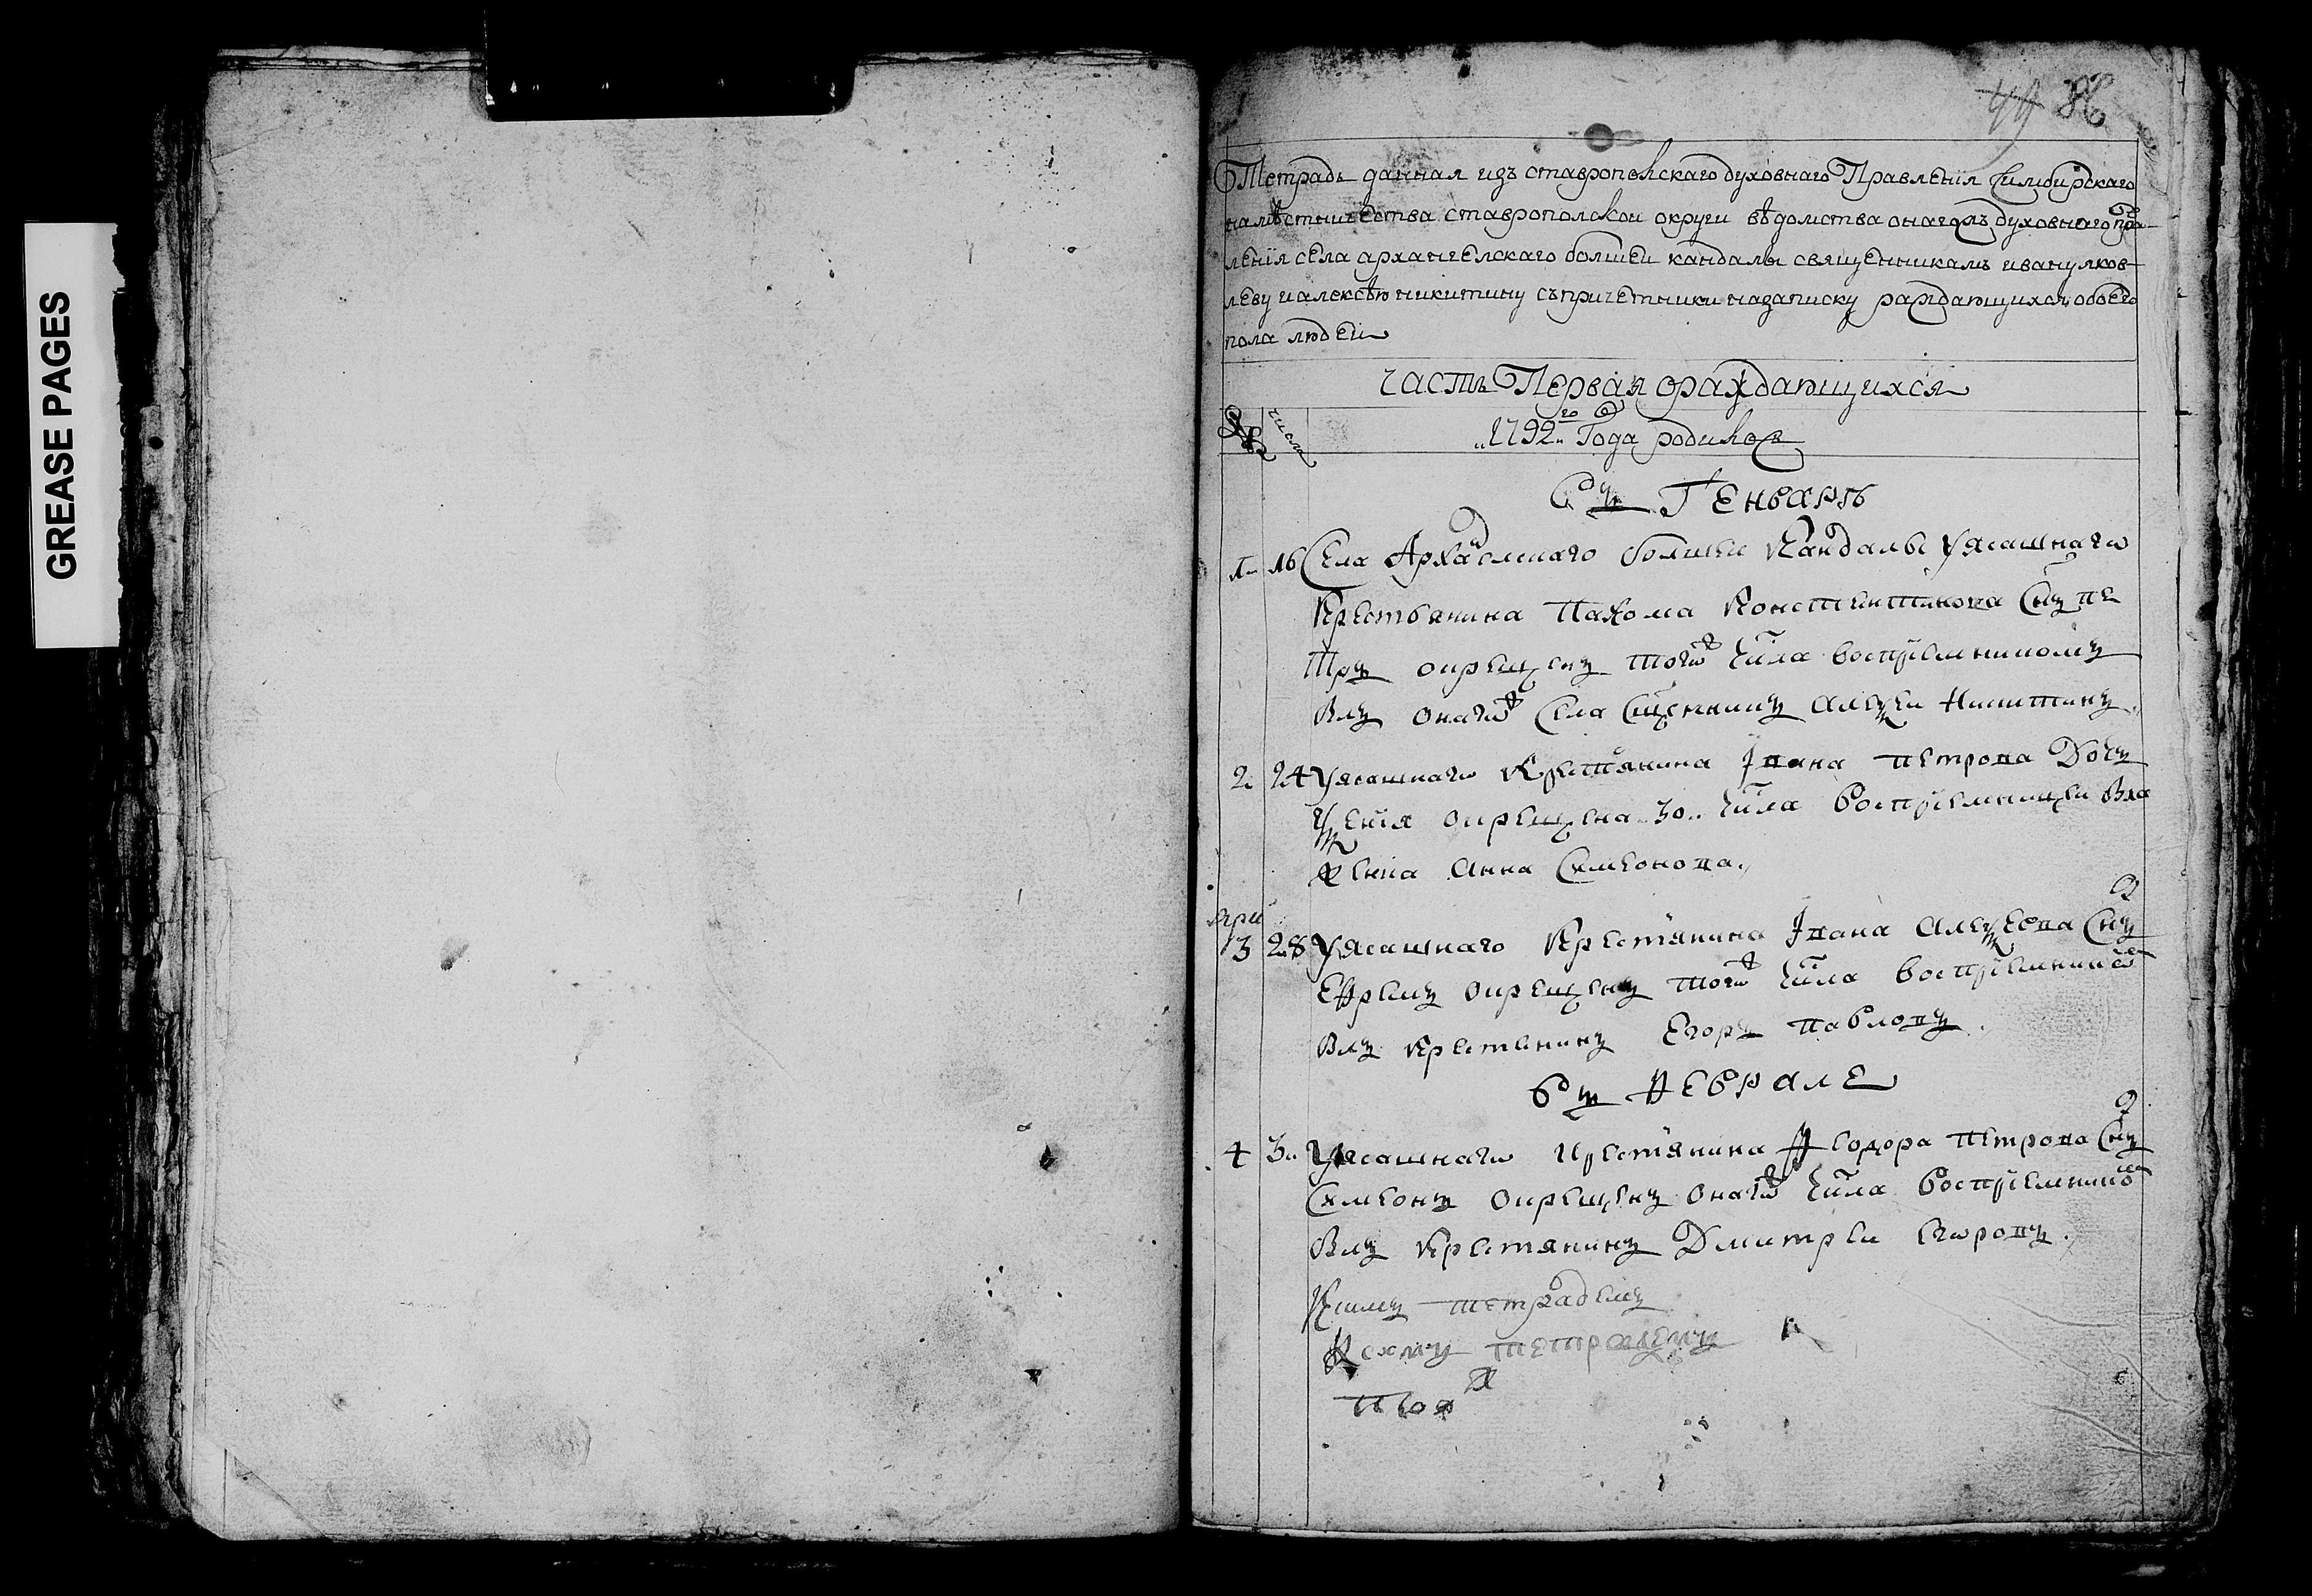 GREASE PAGES
Тетрадь данная изъ ставропольскаго духовнаго Правленія Симбирскаго
намѣстничества ставропольскои округи вѣдомства онагожъ духовнаго пра-
вленія села архангелскаго болшеи кандалы священникамъ ивану яков-
леву и алексѣю никитину съпричетники назаписку раждающихся обоего
пола людеи
Часть Первая ораждающихся
№ числа
1792го Года родилось
Генварь
1 16 Села Арха болшеи Кандалы Уясашнаго
Крестьянина Пахома Констентинова Снъ пе
тръ окрещенъ тогож числа восприемникомъ
Былъ онагож Села Сщенникъ Алеѯеи Никитинъ
2 24 Уясашнаго Крестянина Ивана петрова Дочь
окрещена 30 числа восприемницеи Была
Анна Симеонова
3 28 Уясашнаго Крестянина Ивана Алеѯеева Снъ
Ефремъ окрещенъ тогож числа восприемником
Былъ крестянинъ Егоръ павловъ
феврале
4 3 Уясашнаго крестянина Феодора петрова Снъ
Симеонъ окрещенъ онагож числа восприемником
Былъ крестянинъ Дмитреи Егоровъ